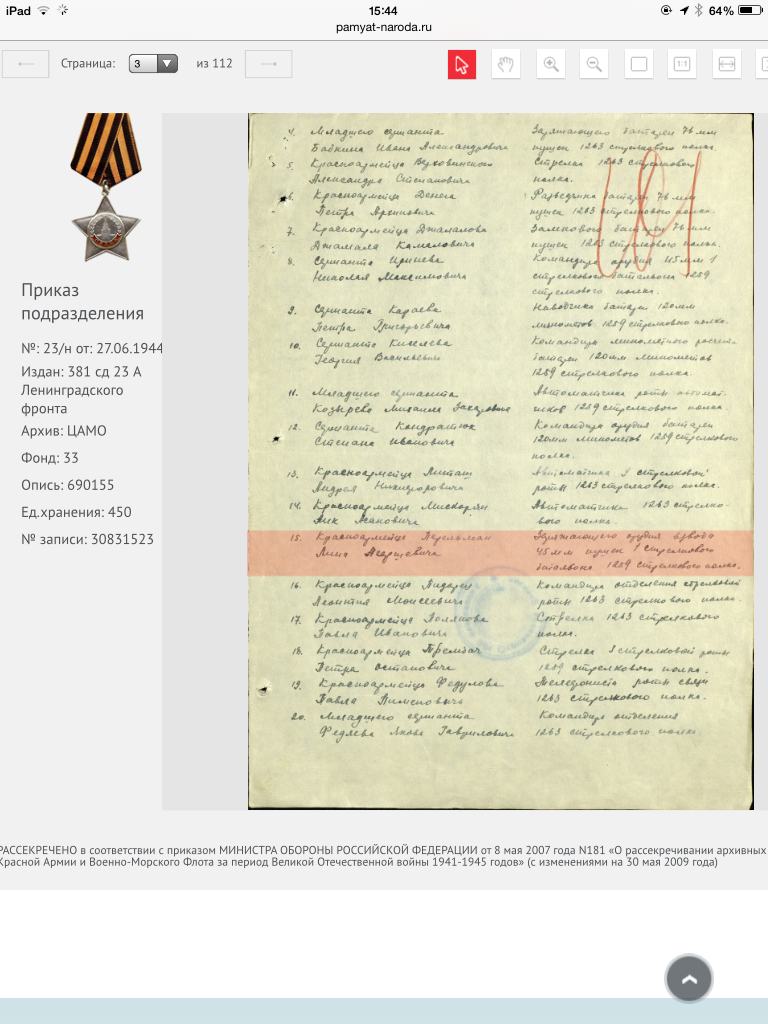 iPad 15:44 64%
pamyat-naroda.ru
Страница: 3 из 112
1:1
Приказ
подразделения
№: 23/н от: 27.06.1944
Издан: 381 сд 23 А
Ленинградского
фронта
Архив: ЦАМО
Фонд: 33
Опись: 690155
Ед.хранения: 450
№ записи: 30831523
4. Младшего сержанта Заряжающего батареи 76 мм
Бабкина Ивана Александровича пушек 1263 стрелкового полка.
5. Красноармейца Стрелка 1263 стрелкового
Александра Степановича полка.
6. Красноармейца Разведчика батареи 76 мм
Петра пушек 1263 стрелкового полка.
7. Красноармейца Джамалова Замкового батареи 76 мм
Джамала Камаловича пушек 1263 стрелкового полка.
8. Сержанта Командира орудия 45 мм 1
Николая Максимовича стрелкового батальона 1259
стрелкового полка.
9. Сержанта Караева Наводчика батареи 120мм
Петра Григорьевича минометов 1259 стрелкового полка.
10. Сержанта Киселева Командира минометного расчета
Георгия Васильевича батареи 120мм минометов
1259 стрелкового полка.
11. Младшего сержанта Автоматчика роты автомат-
Козырева Михаила Захаровича чиков 1259 стрелкового полка.
12. Сержанта Кондратюк Командира орудия батареи
Степана Ивановича 120мм минометов 1259 стрелкового
полка.
13. Красноармейца Автоматчика стрелковой
Андрея Никифоровича роты 1263 стрелкового полка.
14. Красноармейца Автоматчика 1263 стрелко-
вого полка.
15. Красноармейца Перельман Заряжающего орудия взвода
45 мм пушек 1 стрелкового
батальона 1259 стрелкового полка.
16. Красноармейца Командира отделения стрелковой
Леонтия Моисеевича роты 1263 стрелкового полка.
17. Красноармейца Полякова Стрелка 1263 стрелкового
Павла Ивановича полка.
18. Красноармейца Стрелка стрелковой роты
Петра Остаповича 1259 стрелкового полка.
19. Красноармейца Федулова Телефониста роты связи
Павла Пименовича 1263 стрелкового полка.
20. Младшего сержанта Командира отделения
Якова Гавриловича 1263 стрелкового полка.
РАССЕКРЕЧЕНО в соответствии с приказом МИНИСТРА ОБОРОНЫ РОССИЙСКОЙ ФЕДЕРАЦИИ от 8 мая 2007 года N181 «О рассекречивании архивных
Красной Армии и Военно-Морского Флота за период Великой Отечественной войны 1941-1945 годов» (с изменениями на 30 мая 2009 года)